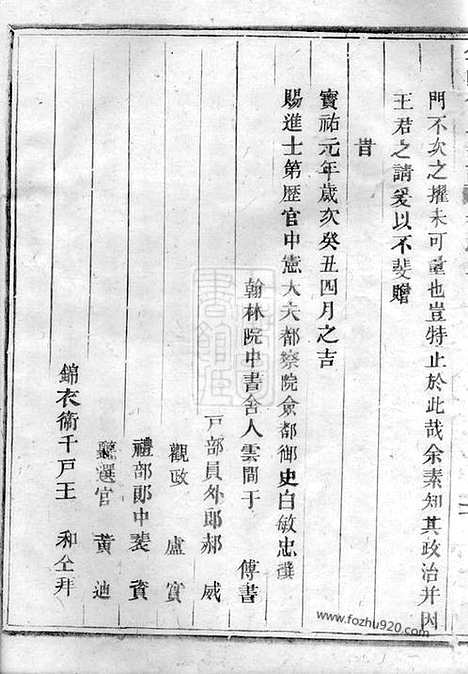 門不次之擢未可量也豈特止於此哉余素知其政治并因
王君之請爰以不斐贈
昔
寶祐元年歲次癸丑四月之吉
賜進士第歷官中憲大夫都察院僉都御史白敏忠譔
翰林院中書舍人雲間于 傅書
戸部員外郎郝 威
觀政 盧 實
禮部郎中裴 賓
聽選官 黃 迪
錦衣衛千戸王 和仝拜
www.fozhu920.com